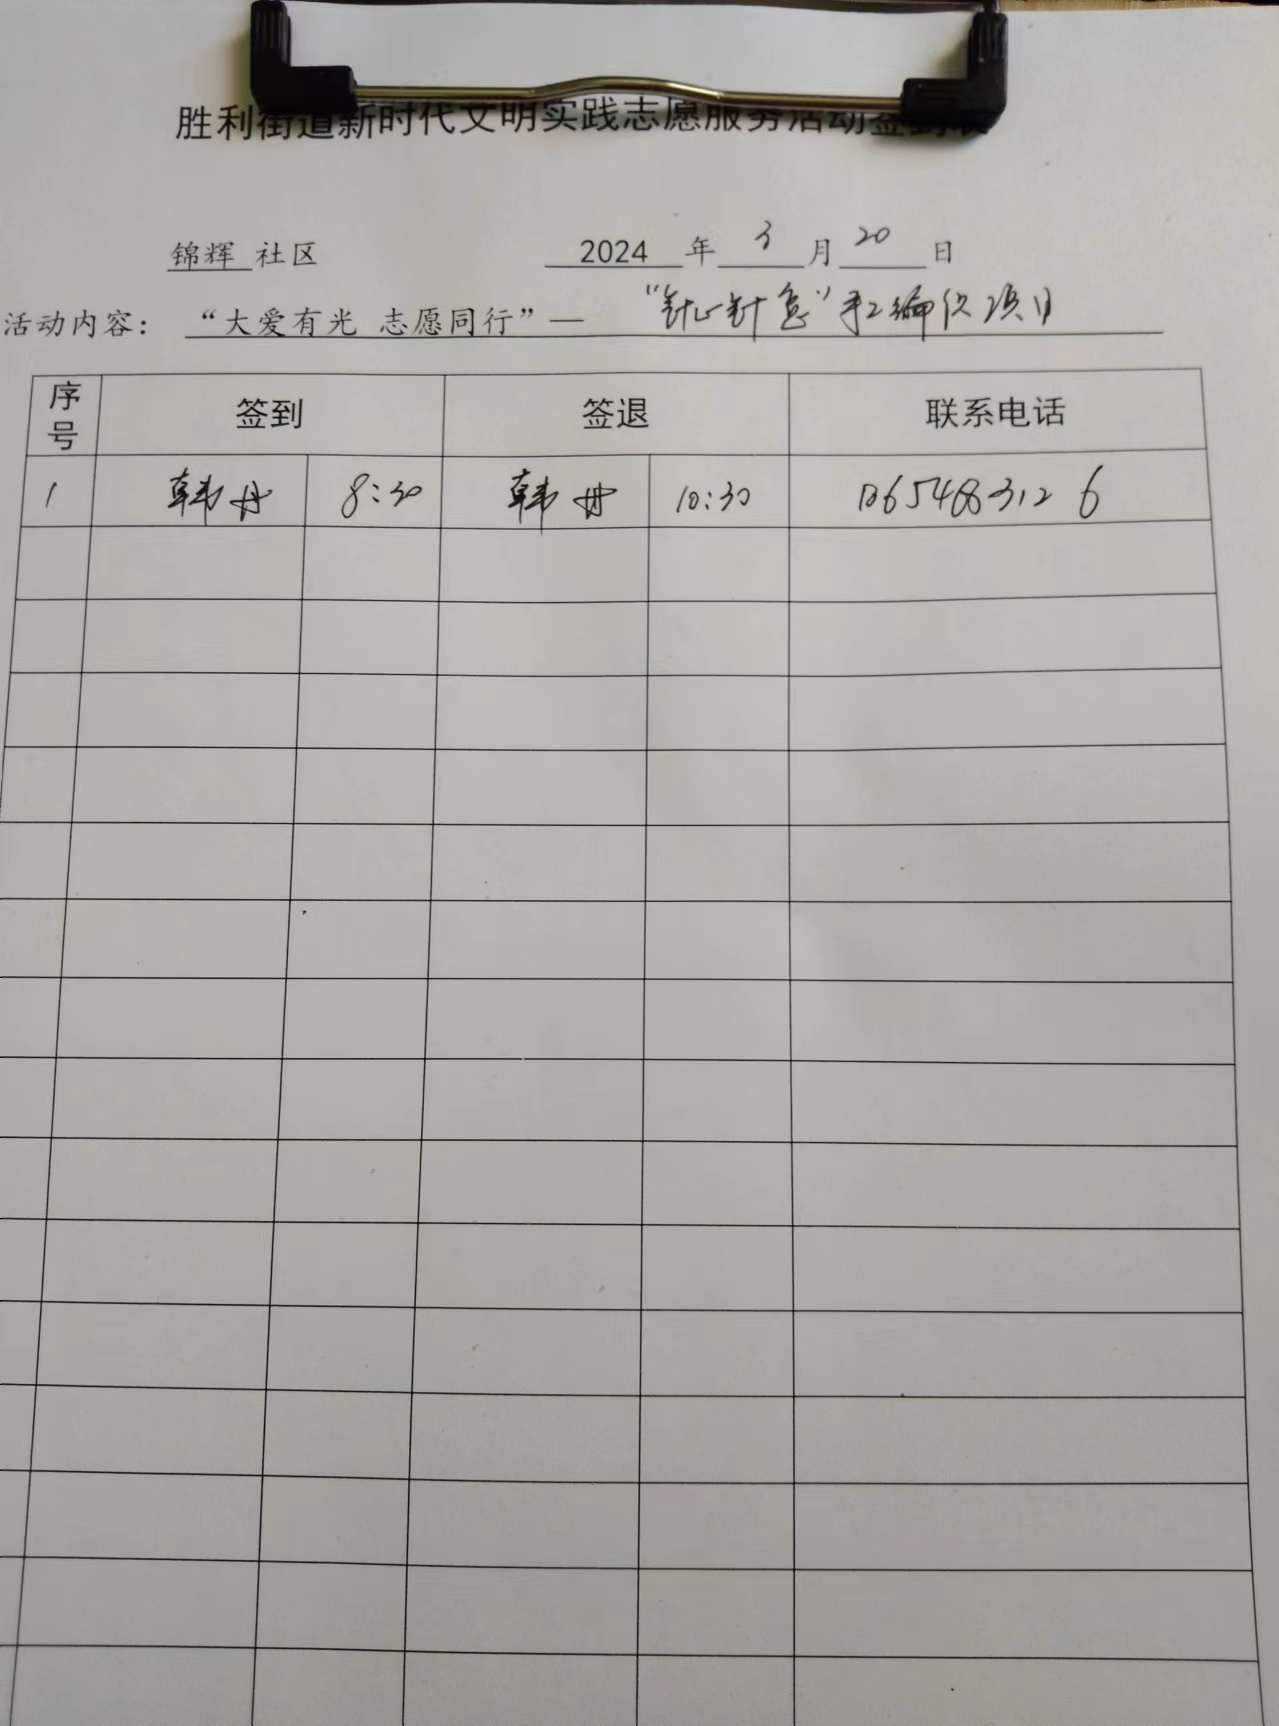 胜利街道新时代文明实践志愿服务活动签到表
锦辉 社区 2024 年 3 月 20 日
活动内容： “大爱有光 志愿同行”— “针心针意”手工编织项目
序号 签到 签退 联系电话
1 韩丹 8:30 韩丹 10:30 13654683126